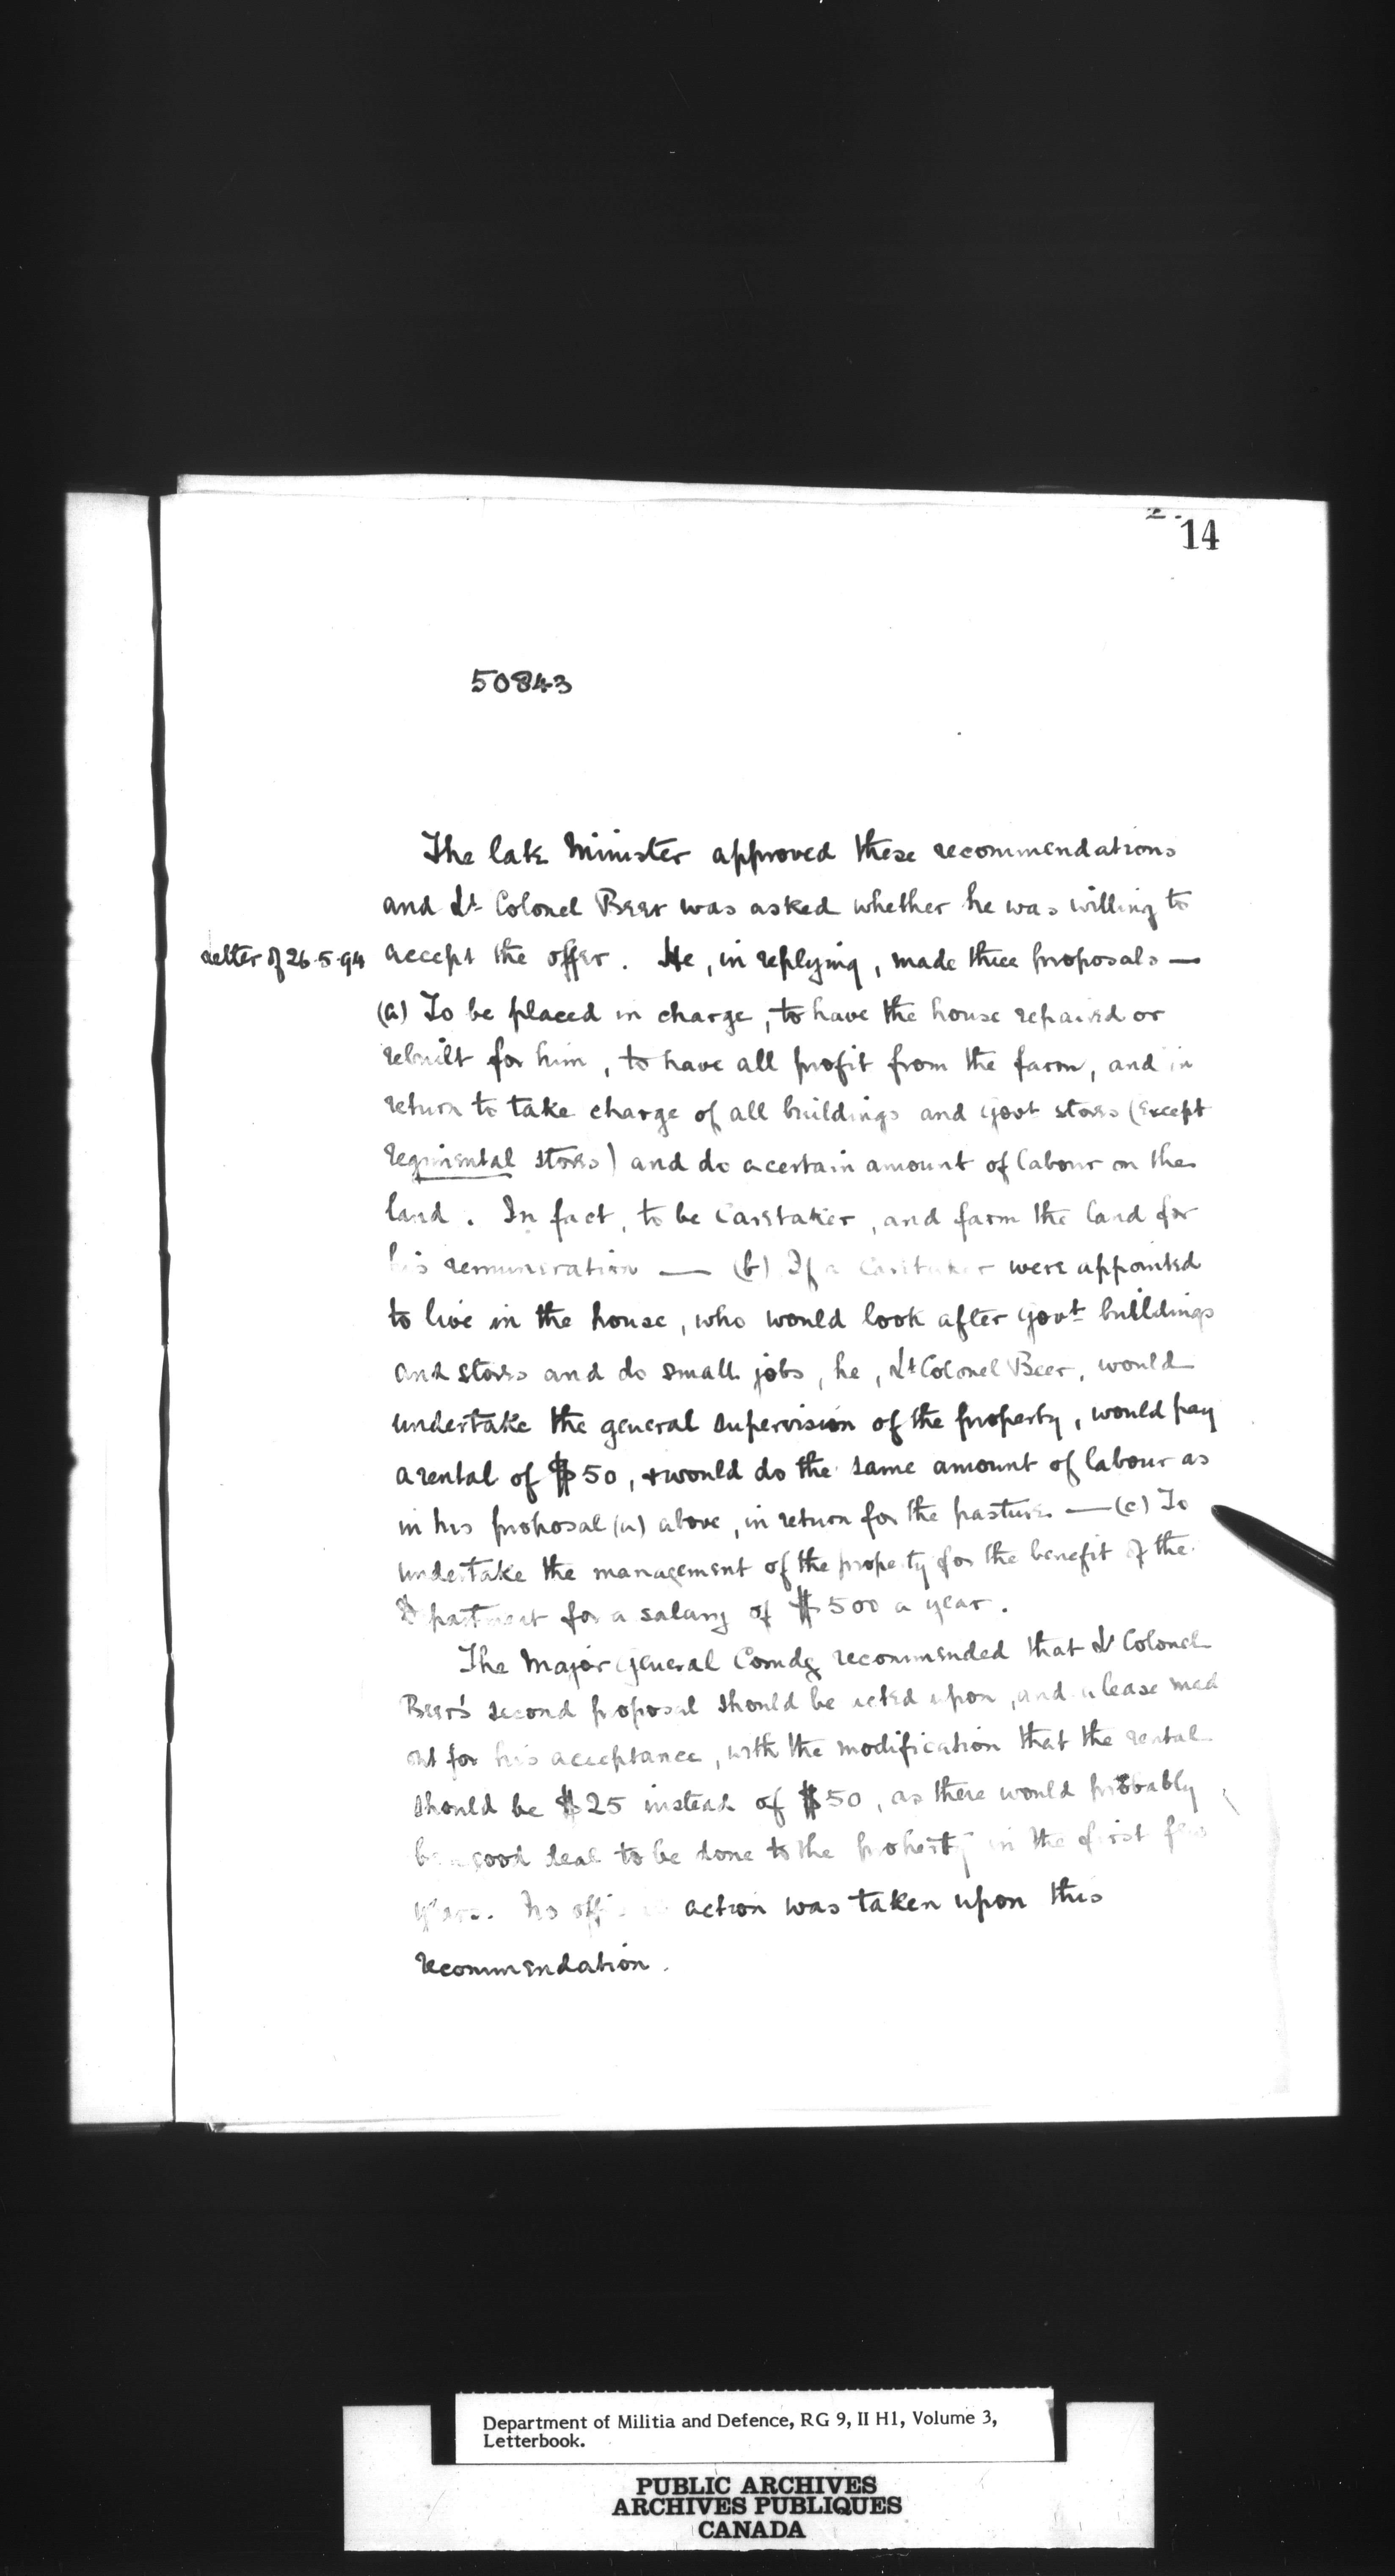 2.
14
50843
The late Minister approved these recommendations
and Lt Colonel Beer was asked whether he was willing to
Letter of 26.5.94 accept the offer. He, in replying, made three proposals —
(a) To be placed in charge, to have the house repaired or
rebuilt for him, to have all profit from the farm, and in
return to take charge of all buildings and Govt stores (except
regimental stores) and do a certain amount of labour on the
land. In fact, to be Caretaker, and farm the land for
his remuneration — (b) If a Caretaker were appointed
to live in the house, who would look after Govt buildings
and stores and do small jobs, he, Lt Colonel Beer, would
undertake the general supervision of the property, would pay
a rental of $50, & would do the same amount of labour as
in his proposal (a) above, in return for the pasture. — (c) To
undertake the management of the property for the benefit of the
Department for a salary of $500 a year.
The Major General Comdg recommended that Lt Colonel
Beer's second proposal should be acted upon, and a lease mad
out for his acceptance, with the modification that the rental
should be $25 instead of $50, as there would probably
be a good deal to be done to the property in the first few
years. No action was taken upon this
recommendation.
Department of Militia and Defence, RG 9, II H1, Volume 3,
Letterbook.
PUBLIC ARCHIVES
ARCHIVES PUBLIQUES
CANADA